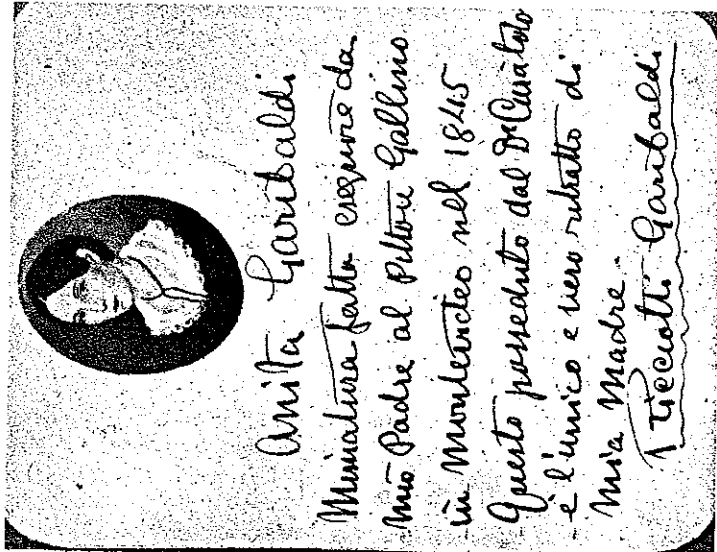 Anita Garibaldi
Miniatura fatta eseguire da
mio Padre al Pittore Gallino
in Montevideo nel 1845
Questo posseduto dal Dr Curàtolo
è l'unico e vero ritratto di
mia Madre -
Ricciotti Garibaldi